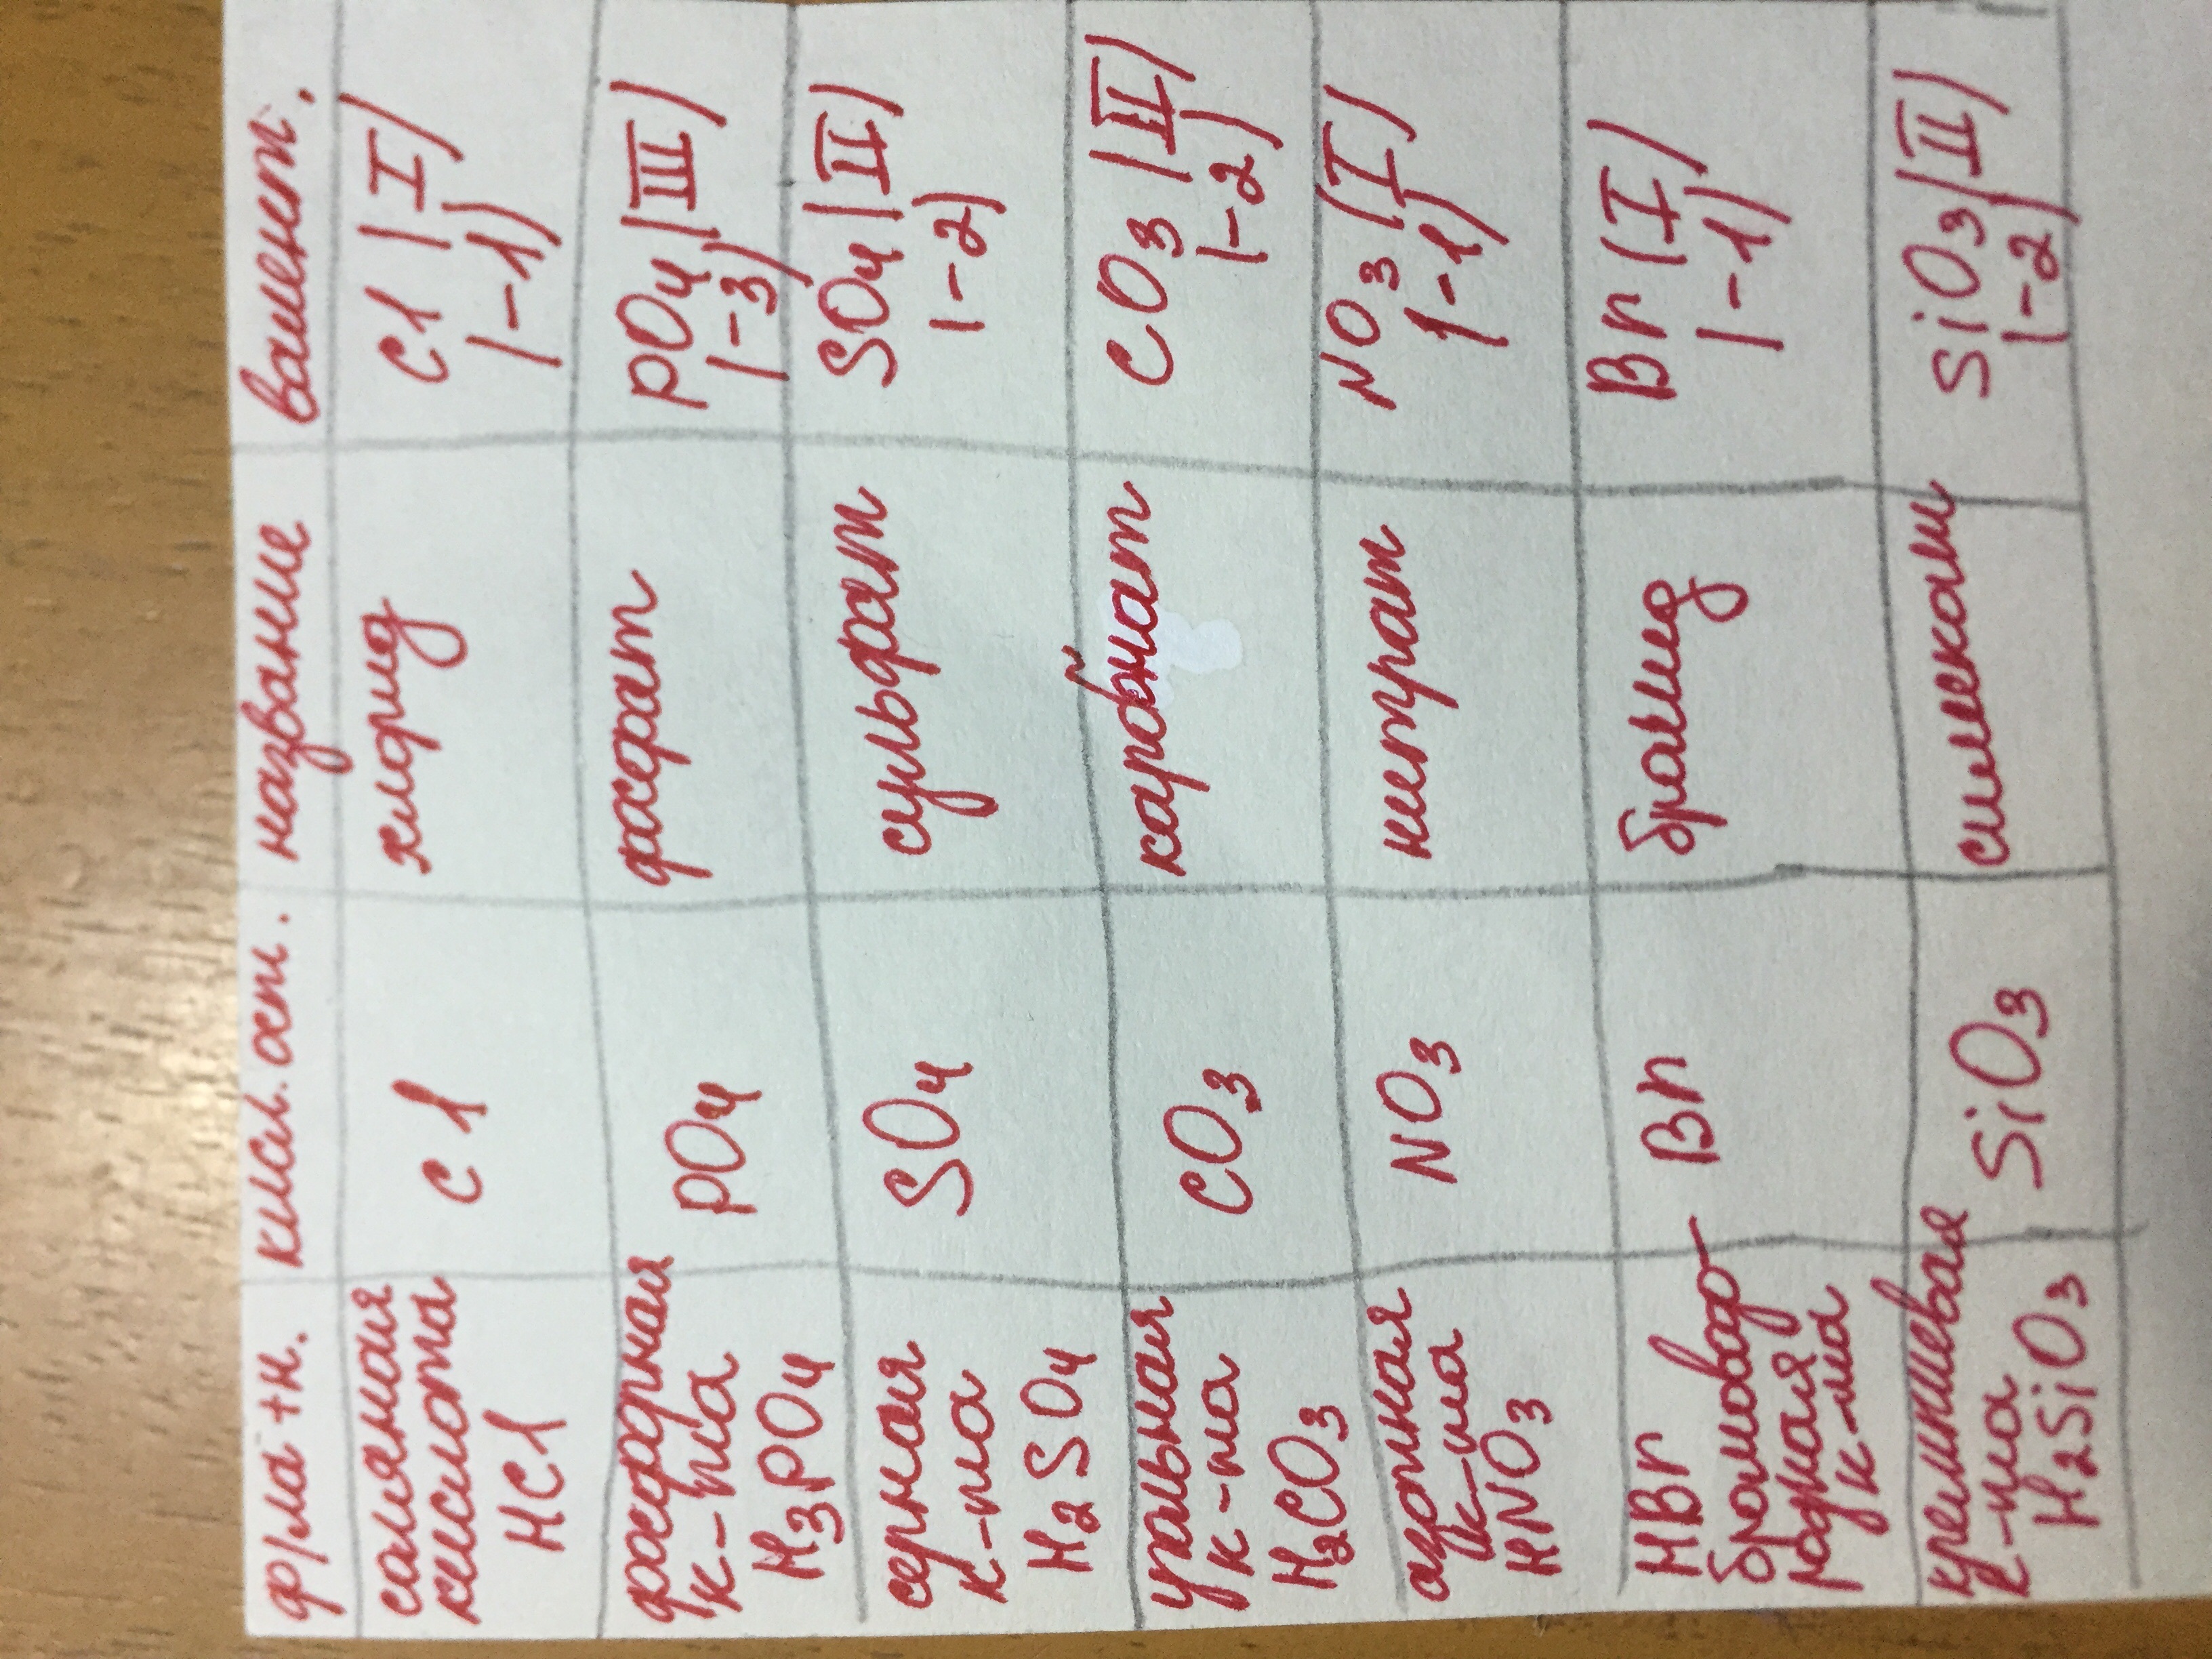 ф/ла + н. кисл. ост. название валент.
соляная
кислота
HCl
Cl
хлорид
Cl (I)
(-1)
фосфорная
к-та
H3PO4
PO4
фосфат
PO4 (III)
(-3)
серная
к-та
H2SO4
SO4
сульфат
SO4 (II)
(-2)
угольная
к-та
H2CO3
CO3
карбонат
CO3 (II)
(-2)
азотная
к-та
HNO3
NO3
нитрат
NO3 (I)
(-1)
HBr
бромовдо-
родная
к-та
Br
бромид
Br (I)
(-1)
кремниевая
к-та
H2SiO3
SiO3
силикат
SiO3 (II)
(-2)